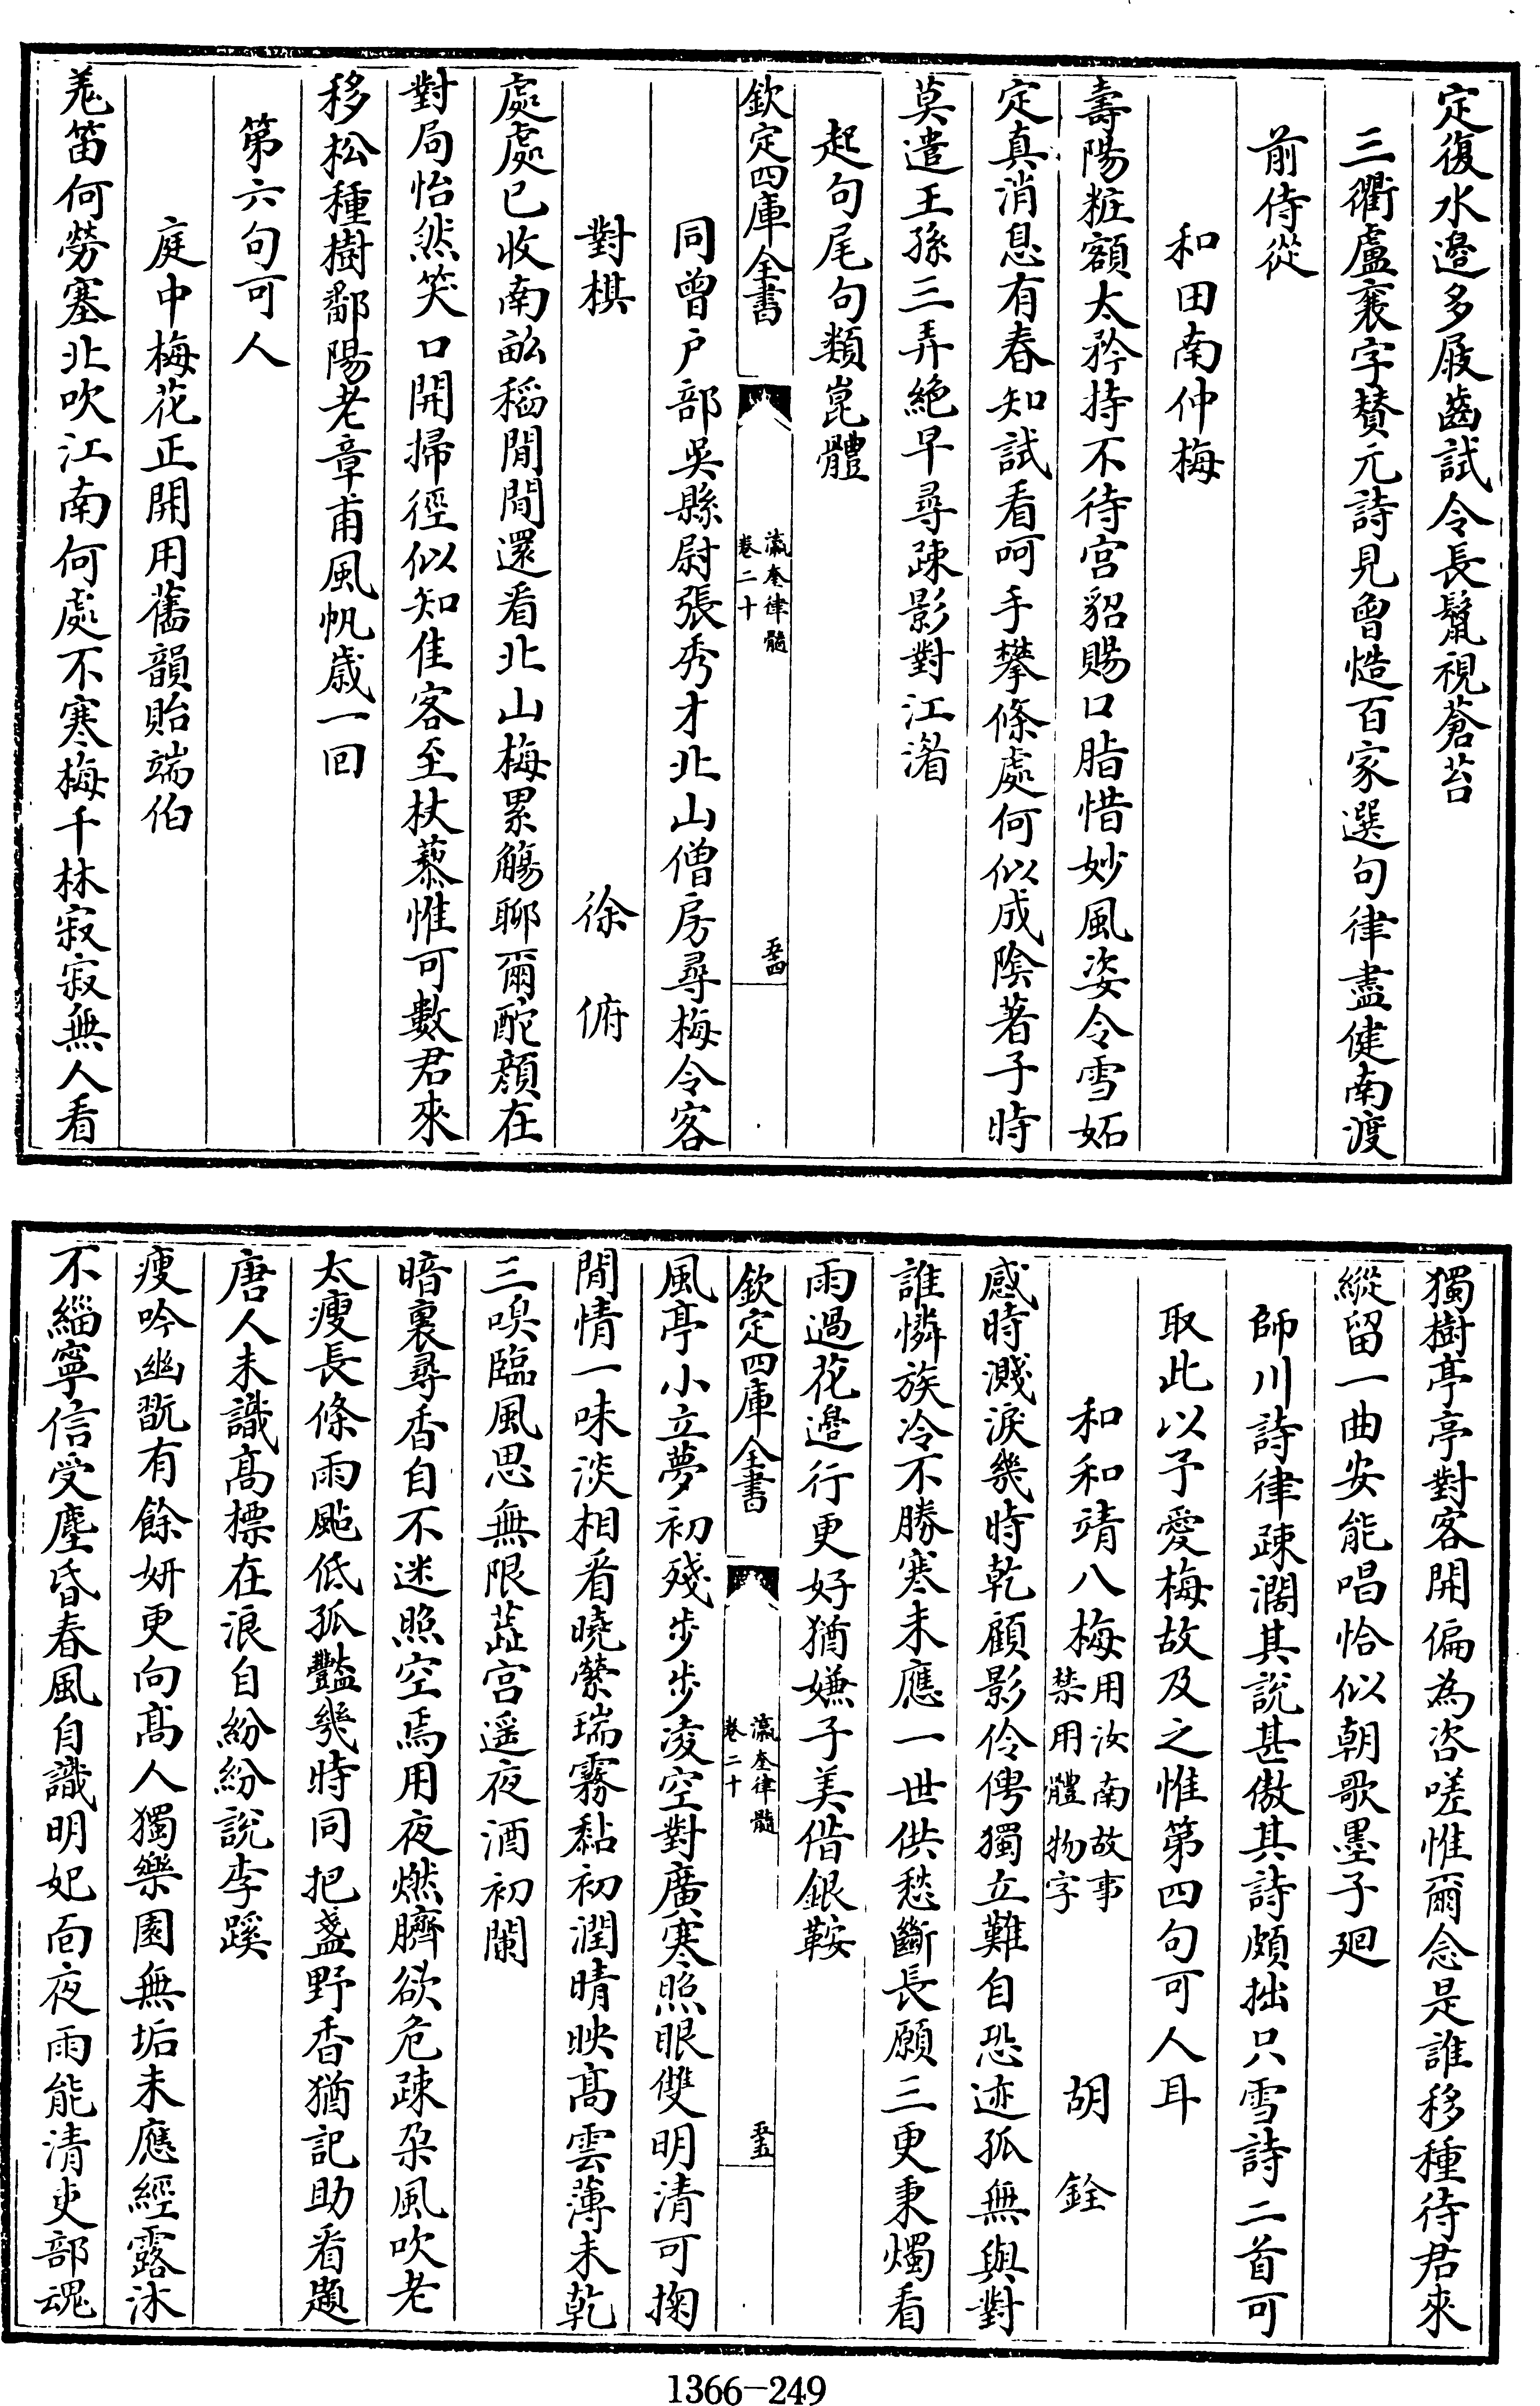 定復水邉多屐齒試令長鬣視蒼苔
三衢盧襄字贊元詩見曾慥百家選句律盡健南渡
前侍從
和田南仲梅
壽陽粧額太矜持不待宫貂賜口脂惜妙風姿令雪妬
定真消息有春知試看呵手攀條處何似成隂著子時
莫遣王孫三弄絶早尋疎影對江湄
起句尾句類崑體
欽定四庫全書
瀛奎律髓
卷二十
五四
同曾户部吳縣尉張秀才北山僧房尋梅令客
對棋
徐俯
處處已收南畝稻閒閒還看北山梅累觴聊爾酡顔在
對局怡然笑口開掃徑似知佳客至杖藜惟可數君來
移松種樹鄱陽老章甫風帆歳一回
第六句可人
庭中梅花正開用舊韻貽端伯
羗笛何勞塞北吹江南何處不寒梅千林寂寂無人看
獨樹亭亭對客開偏為咨嗟惟爾念是誰移種待君來
縱留一曲安能唱恰似朝歌墨子廻
師川詩律疎濶其說甚傲其詩頗拙只雪詩二首可
取此以予愛梅故及之惟第四句可人耳
和和靖八梅
用汝南故事
禁用體物字
胡銓
感時濺淚幾時乾顧影伶俜獨立難自恐迹孤無與對
誰憐族冷不勝寒未應一世供愁斷長願三更秉燭看
雨過花邉行更好猶嫌子美偕銀鞍
欽定四庫全書
瀛奎律髓
卷二十
五五
風亭小立夢初殘步步凌空對廣寒照眼雙明清可掬
閒情一味淡相看曉縈瑞霧黏初潤晴映髙雲薄未乾
三嗅臨風思無限蘂宫遥夜酒初闌
暗裏尋香自不迷照空焉用夜燃臍欲危疎朶風吹老
太瘦長條雨颭低孤豔幾時同把盞野香猶記助看題
唐人未識髙標在浪自紛紛說李蹊
瘦吟幽翫有餘妍更向髙人獨樂園無垢未應經露沐
不緇寧信受塵昏春風自識明妃靣夜雨能清吏部魂
1366-249